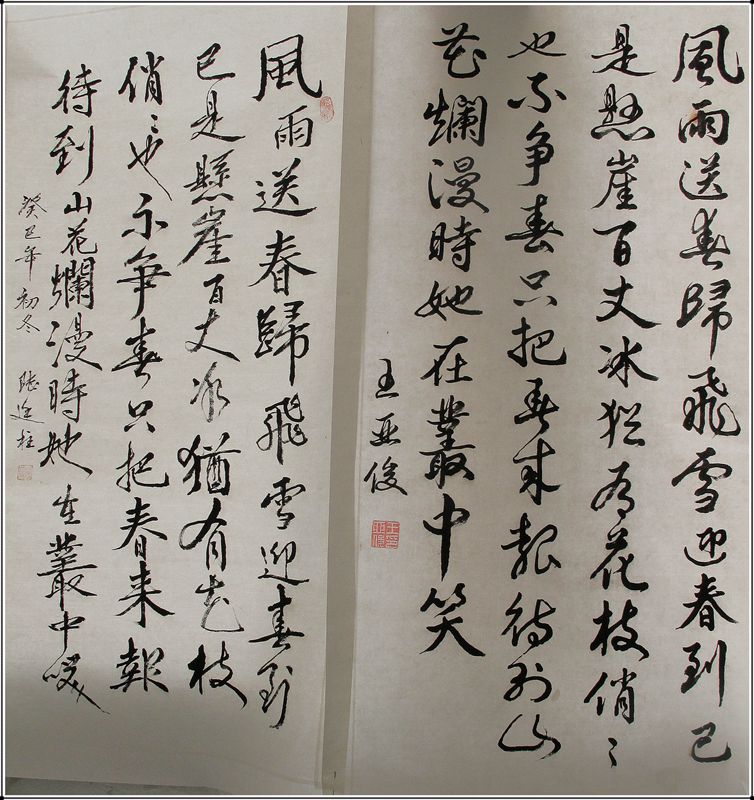 風雨送春歸飛雪迎春到已
是懸崖百丈冰犹有花枝俏〻
也不争春只把春来報待到山
花爛漫時她在叢中笑
王亚俊
風雨送春歸飛雪迎春到
已是懸崖百丈冰猶有花枝
俏〻也不争春只把春来報
待到山花爛漫時她在叢中咲
癸巳年初冬 廷柱